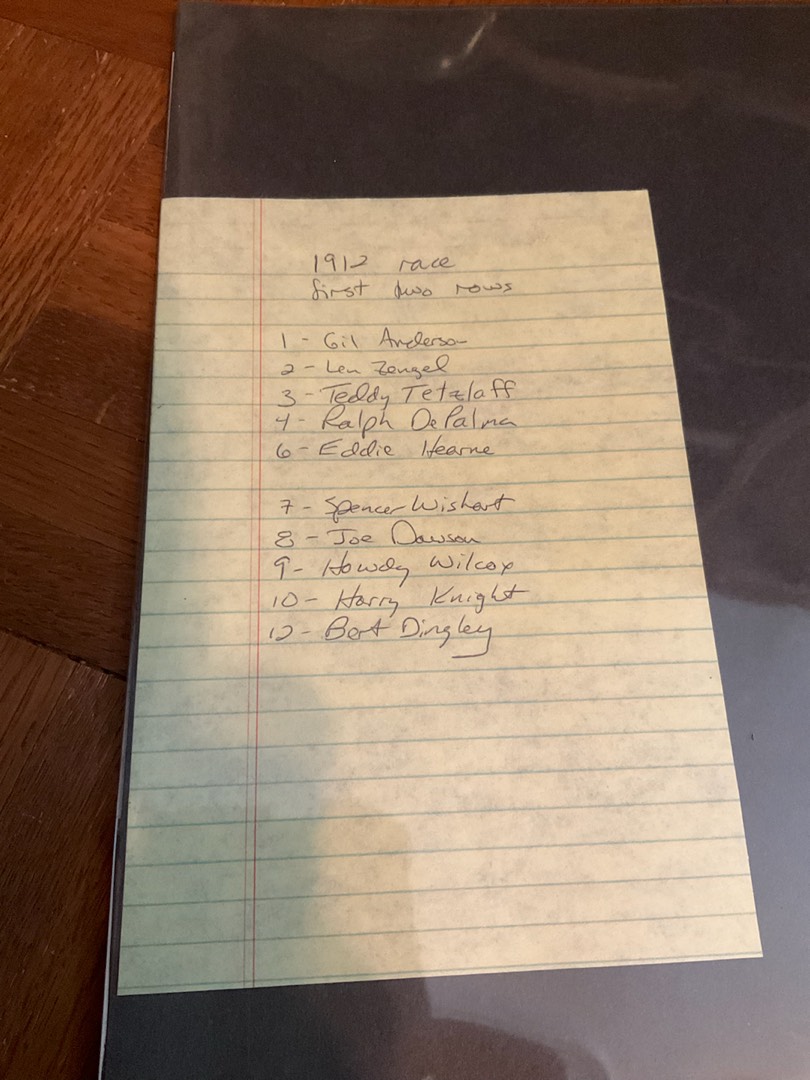 1912 race
first two rows
1 - Gil Anderson
2 - Len Zengel
3 - Teddy Tetzlaff
4 - Ralph DePalma
6 - Eddie Hearne
7 - Spencer Wishart
8 - Joe Dawson
9 - Howdy Wilcox
10 - Harry Knight
12 - Bert Dingley